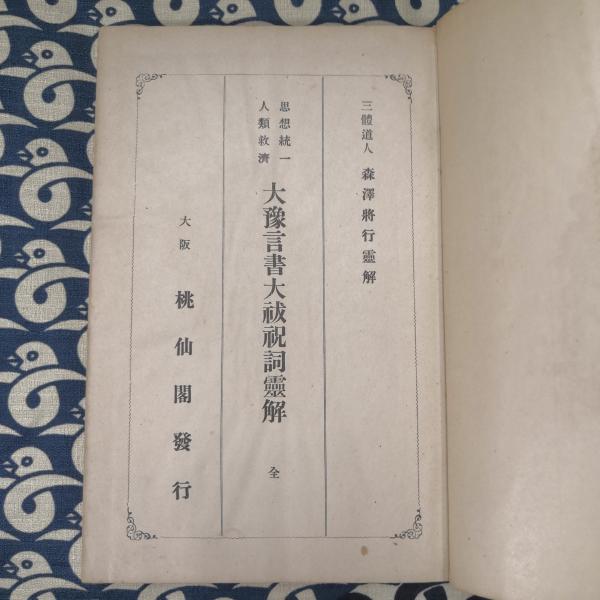 三體道人　森澤將行靈解
思想統一
人類救濟
大豫言書大祓祝詞靈解　全
大阪　桃仙閣發行